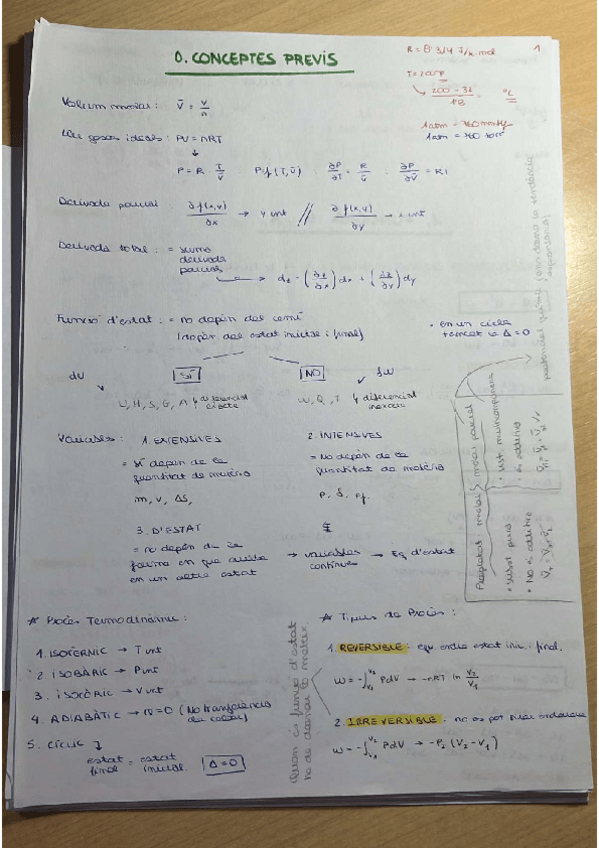 0. CONCEPTES PREVIS
R = 8'314 J/K mol
1
T = 200°F
200 - 32 / 1'8 = °C
1atm = 760 mmHg
1atm = 760 torr
Volum molar: V̄ = V/n
Llei gasos ideals: PV = nRT
↓
P = R · T/V̄ P = f(T, v̄) ∂P/∂T = R/V̄ ∂P/∂V̄ =
Derivada parcial: ∂f(x,y)/∂x → y cnt // ∂f(x,y)/∂y → x cnt
Derivada total: = suma
derivada
parcials
→ dz = (∂z/∂x) dx + (∂z/∂y) dy
Funció d'estat: = no depèn del camí
(depèn del estat inicial i final)
• en un cicle
tancat la Δ = 0
dU SÍ NO δW
U, H, S, G, A diferencial
exacte
W, Q, diferencial
inexacte
Variables: 1. EXTENSIVES
= SÍ depèn de la
quantitat de matèria
m, v, ΔS,
2. INTENSIVES
= No depèn de la
quantitat de matèria
3. D'ESTAT
= no depèn de la
forma en que arriba
en un altre estat
→ variables
contínues
→ Eq. d'estat
Propietat molar
• subst. pura
• No és additiva
molar parcial
• sist. multicomponent
• és additiva
potencial químic
* Procès Termodinàmic:
1. ISOTÈRMIC → T cnt
2. ISOBÀRIC → P cnt
3. ISOCÒRIC → V cnt
4. ADIABÀTIC → Q = 0 (No transferència
de calor)
5. CÍCLIC
estat final = estat inicial Δ = 0
Quan és funció d'estat
ha de donar lo mateix
* Tipus de Procès:
1. REVERSIBLE: equ. entre estat inic. i final.
W = -∫_{V1}^{V2} PdV → -nRT ln V2/V1
2. IRREVERSIBLE: no es pot
W = -∫_{V1}^{V2} PdV → -P2 (V2 - V1)